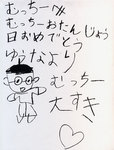 むっちーへ
むっちーおたんじょう
日おめでとう
ゆうなより
むっちー
大すき